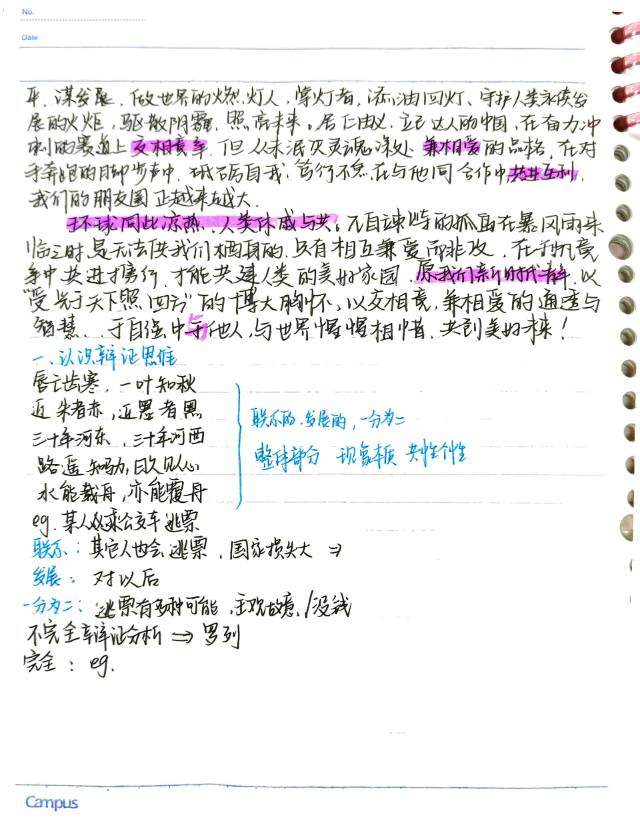 No.
Date
平、谋发展,做世界的燃灯人,擎灯者,添油回灯、守护人类永续发
展的火炬,驱散阴霾,照亮未来。居仁由义,立己达人的中国,在奋力冲
刺的赛道上交相竞率,但从未泯灭灵魂深处兼相爱的品格,在对
手奔跑的脚步声中,砥砺自我,笃行不怠,在与他国合作中共生互利,
我们的朋友圈正越来越大。
环球同此凉热,人类休戚与共。无自谏 的孤岛在暴风雨来
临之时是无法供我们栖身的,只有相互兼爱而非攻,在千帆竞
争中共进 行,才能共建人类的美好家园,愿我们新时代青年,以
“受光于天下照四方”的博大胸怀,以交相竞,兼相爱的通达与
智慧、于自强中与他人,与世界惺惺相惜,共创美好未来!
一、认识辩证思维
唇亡齿寒,一叶知秋
近朱者赤,近墨者黑
三十年河东,三十年河西
路遥知马力,日久见人心
水能载舟,亦能覆舟
联系的、发展的,一分为二
整体部分 现象本质 共性个性
eg. 某人乘公交车逃票
联系:其它人也会逃票,国家损失大 ⇒
发展:对以后
一分为二:逃票有多种可能,主观故意,/没钱
不完全辩证分析 ⇒ 罗列
完全:eg.
Campus